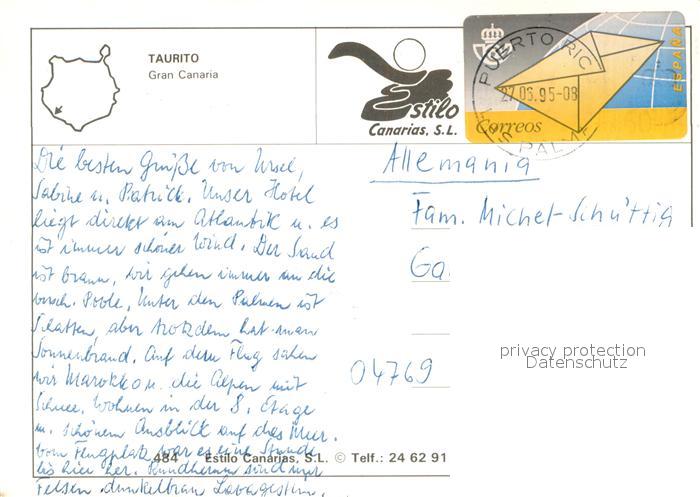 TAURITO
Gran Canaria
Estilo
Canarias, S.L.
PUERTO RIC
27.06.95-08
LAS PALMAS
Correos
ESPAÑA
Die besten Grüße von Ursel,
Sabine u. Patrick. Unser Hotel
liegt direkt am Atlantik u. es
ist immer schöner Wind. Der Sand
ist braun, wir gehen immer an die
versch. Poole. Unter den Palmen ist
Schatten, aber trotzdem hat man
Sonnenbrand. Auf dem Flug sahen
wir Marokko u. die Alpen mit
Schnee. Wohnen in der 8. Etage
m. schönem Ausblick auf das Meer.
Vom Flugplatz war es eine Stunde
bis hier her. Rundherum sind nur
Felsen dunkelbrau Lavagestein.
Allemania
Fam. Michel-Schüttig
Ga
04769
privacy protection
Datenschutz
484 Estilo Canarias, S.L. © Telf.: 24 62 91